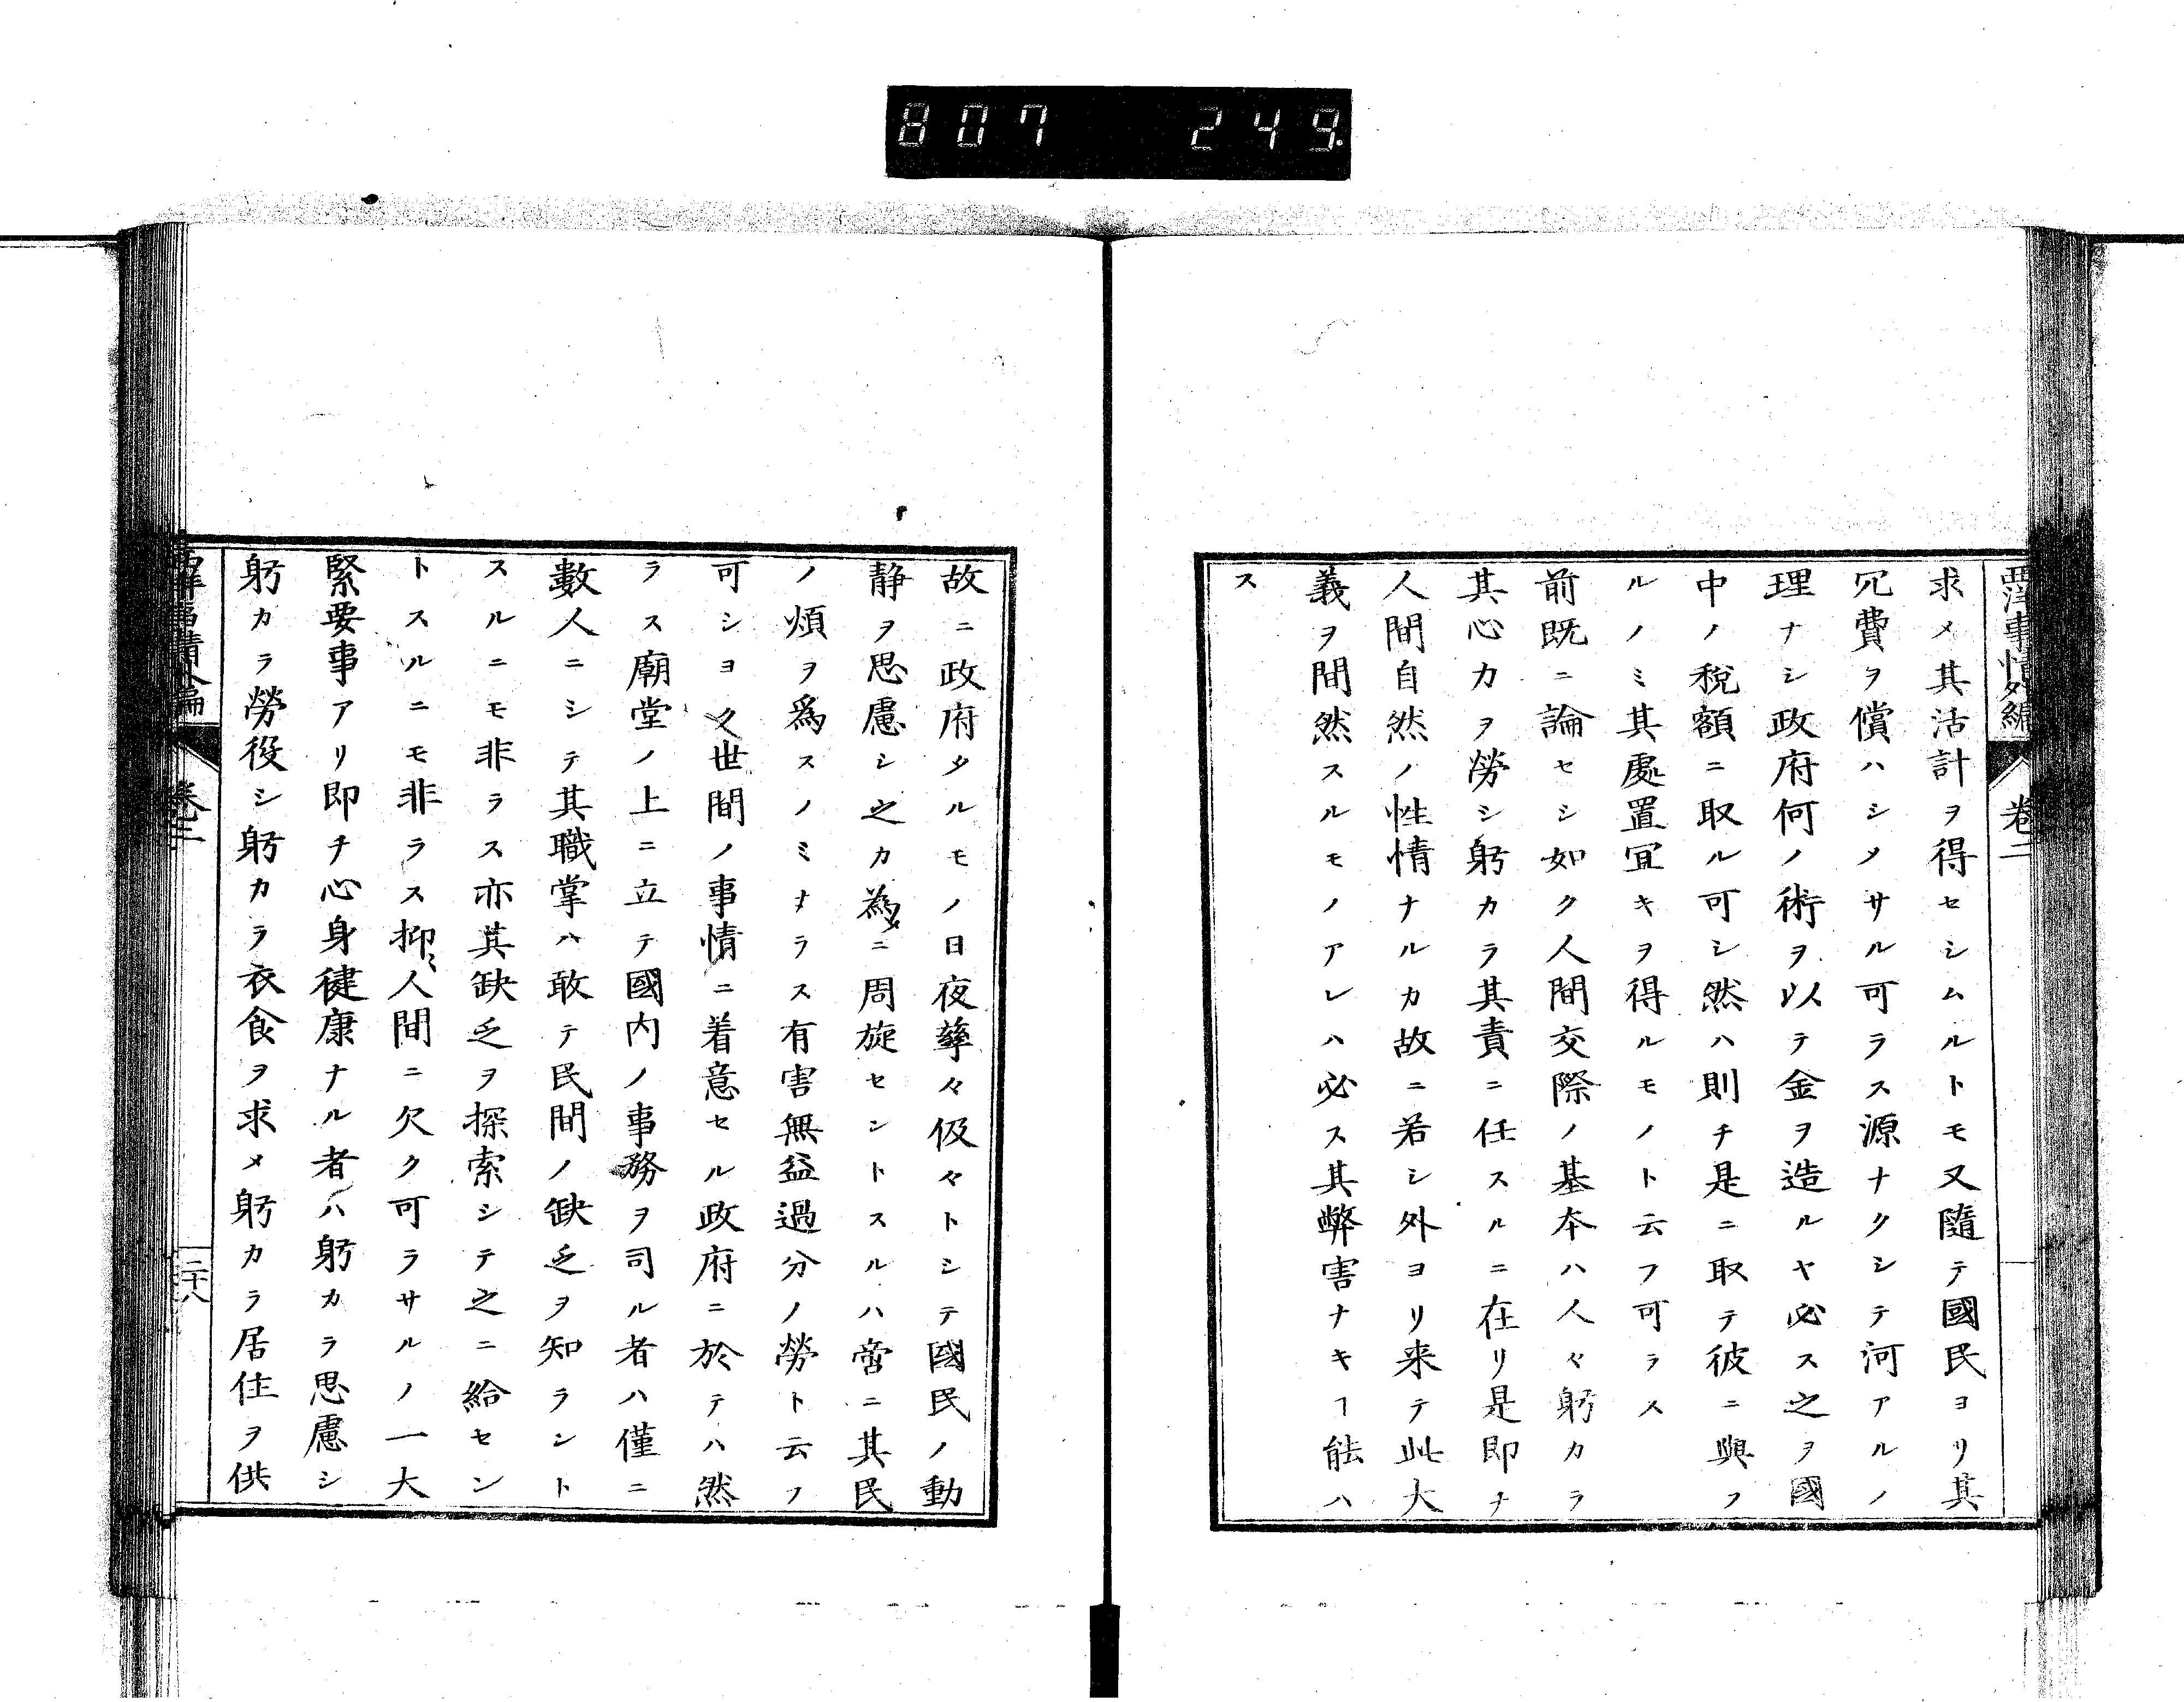 807 249
西洋事情外編 卷二
求メ其活計ヲ得セシムルトモ又隨テ國民ヨリ其
冗費ヲ償ハシメサル可ラス源ナクシテ河アルノ
理ナシ政府何ノ術ヲ以テ金ヲ造ルヤ必ス之ヲ國
中ノ稅額ニ取ル可シ然ハ則チ是ニ取テ彼ニ與フ
ルノミ其處置冝キヲ得ルモノト云フ可ラス
前既ニ論セシ如ク人間交際ノ基本ハ人々躬カラ
其心力ヲ勞シ躬カラ其責ニ任スルニ在リ是即チ
人間自然ノ性情ナルカ故ニ若シ外ヨリ来テ此大
義ヲ間然スルモノアレハ必ス其弊害ナキヿ能ハ
ス
故ニ政府タルモノ日夜孳々伋々トシテ國民ノ動
静ヲ思慮シ之カ為メニ周旋セントスルハ啻ニ其民
ノ煩ヲ爲スノミナラス有害無益過分ノ勞ト云フ
可シヨク世間ノ事情ニ着意セル政府ニ於テハ然
ラス廟堂ノ上ニ立テ國内ノ事務ヲ司ル者ハ僅ニ
數人ニシテ其職掌ハ敢テ民間ノ缺乏ヲ知ラント
スルニモ非ラス亦其缺乏ヲ探索シテ之ニ給セン
トスルニモ非ラス抑〻人間ニ欠ク可ラサルノ一大
緊要事アリ即チ心身健康ナル者ハ躬カラ思慮シ
躬カラ勞役シ躬カラ衣食ヲ求メ躬カラ居住ヲ供
西洋事情外編 卷二 二十八